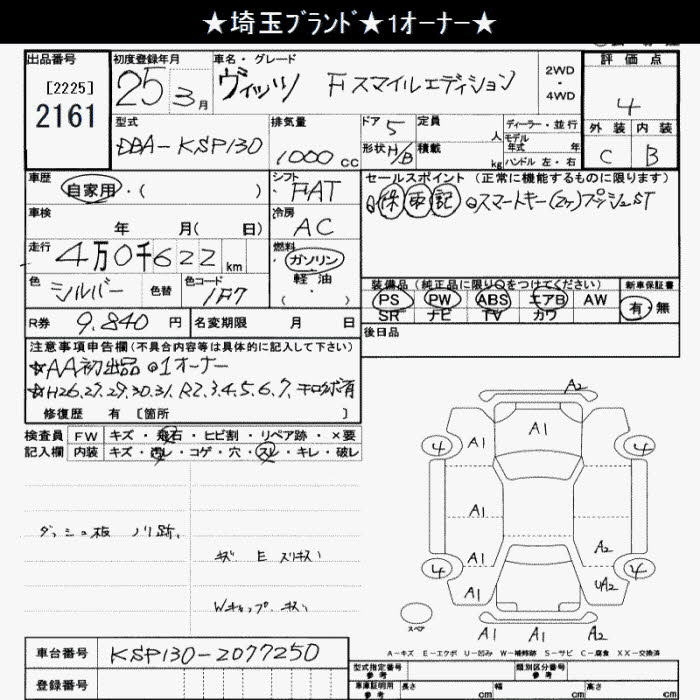 ★埼玉ブランド★1オーナー★
出品番号
[2225]
2161
初度登録年月
25 3月
車名・グレード
ヴィッツ Fスマイルエディション
2WD
・
4WD
評価点
4
外装 内装
C B
型式
DBA-KSP130
排気量
1000 cc
ドア 5
形状 H/B
定員 人
積載 kg
ディーラー・並行
モデル年式 年
ハンドル 左・右
車歴
自家用・( )
シフト
FAT
セールスポイント (正常に機能するものに限ります)
保 車 記 ◎スマートキー(2ケ)プッシュST
車検 年 月( 日)
冷房
AC
走行
4万0千622km
燃料
ガソリン
軽油
・( )
色
シルバー
色替
色コード
1F7
装備品(純正品に限り○をつけてください)
PS PW ABS エアB AW
SR ナビ TV カワ
新車保証書
有・無
R券 9,840 円
名変期限 月 日
後日品
注意事項申告欄(不具合内容等は具体的に記入して下さい)
☆AA初出品 ◎1オーナー
☆H26.27.29.30.31. R2.3.4.5.6.7. キロク有
修復歴 有 [箇所 ]
検査員 FW キズ・飛石・ヒビ割・リペア跡・×要
記入欄 内装 キズ・汚レ・コゲ・穴・スレ・キレ・破レ
ダッシュ板 ノリ跡.
キズ E スリキズ
Wキャップ キズ
A2
A1 A1
4 4
A1
A1 A2
4 4
A1 UA2
スペア
A1 A1 A2
A-キズ E-エクボ U-凹み W-補修跡 S-サビ C-腐食 XX-交換済
車台番号 KSP130-2077250
登録番号
型式指定番号
参考
類別区分番号
参考
車庫証明用
参考
長さ cm 幅 cm 高さ cm